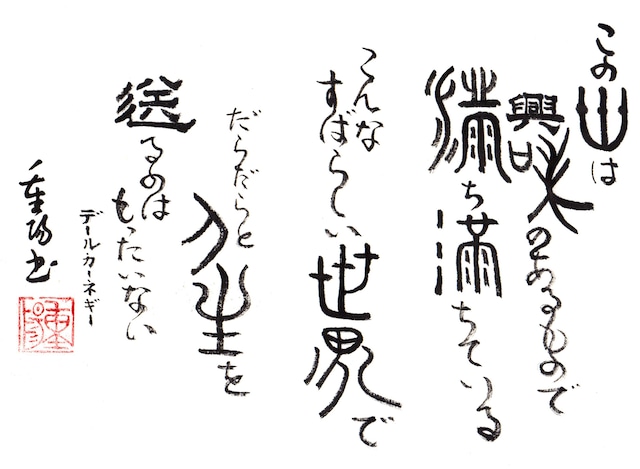 この世は
興味のあるもので
満ち満ちている
こんな
すばらしい世界で
だらだらと人生を
送るのは
もったいない
デールカーネギー
重陽書